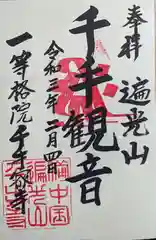 奉拝
遍光山
千手観音
令和三年二月四日
一等格院
千手院
備中国
遍光山